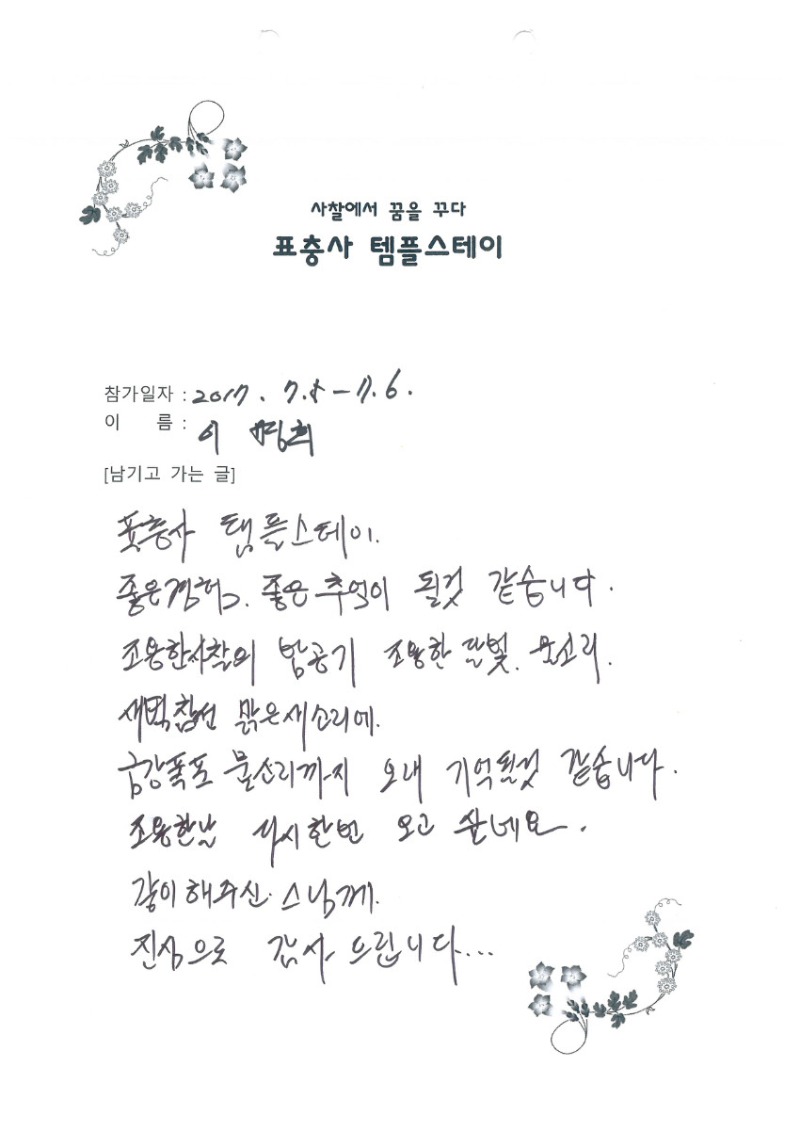 사찰에서 꿈을 꾸다
표충사 템플스테이
참가일자 : 2017. 7.5 - 7.6.
이 름 : 이 명희
[남기고 가는 글]
표충사 탬플스테이.
좋은경험. 좋은추억이 될것 같습니다.
조용한사찰의 밤공기 조용한 달빛. 물소리.
새벽참선 맑은새소리에.
금강폭포 물소리까지 오래 기억될것 같습니다.
조용한날 다시한번 오고 싶네요.
같이해주신 스님께.
진심으로 감사 드립니다...